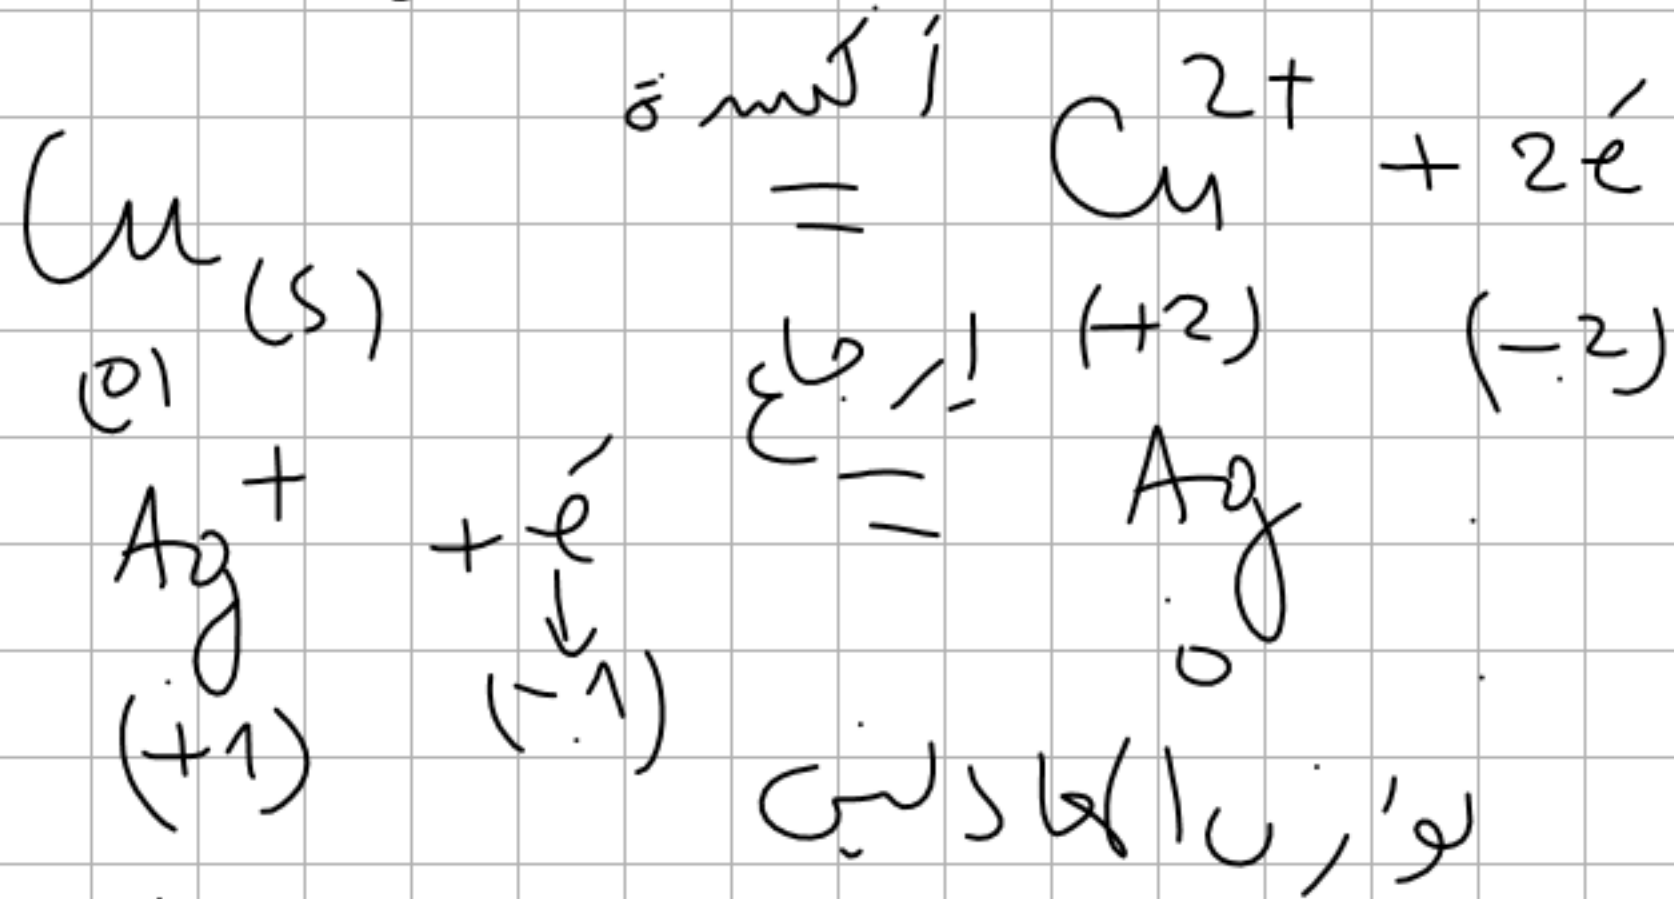 أكسدة
Cu(s) = Cu²⁺ + 2é
(0) (+2) (-2)
إرجاع
Ag⁺ + é = Ag
↓
(+1) (-1) 0
المعادلتين